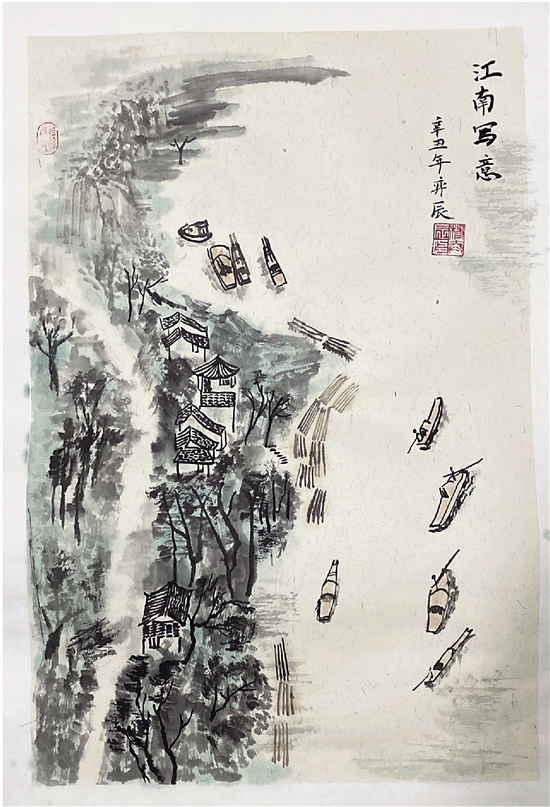 江南写意
辛丑年弈辰